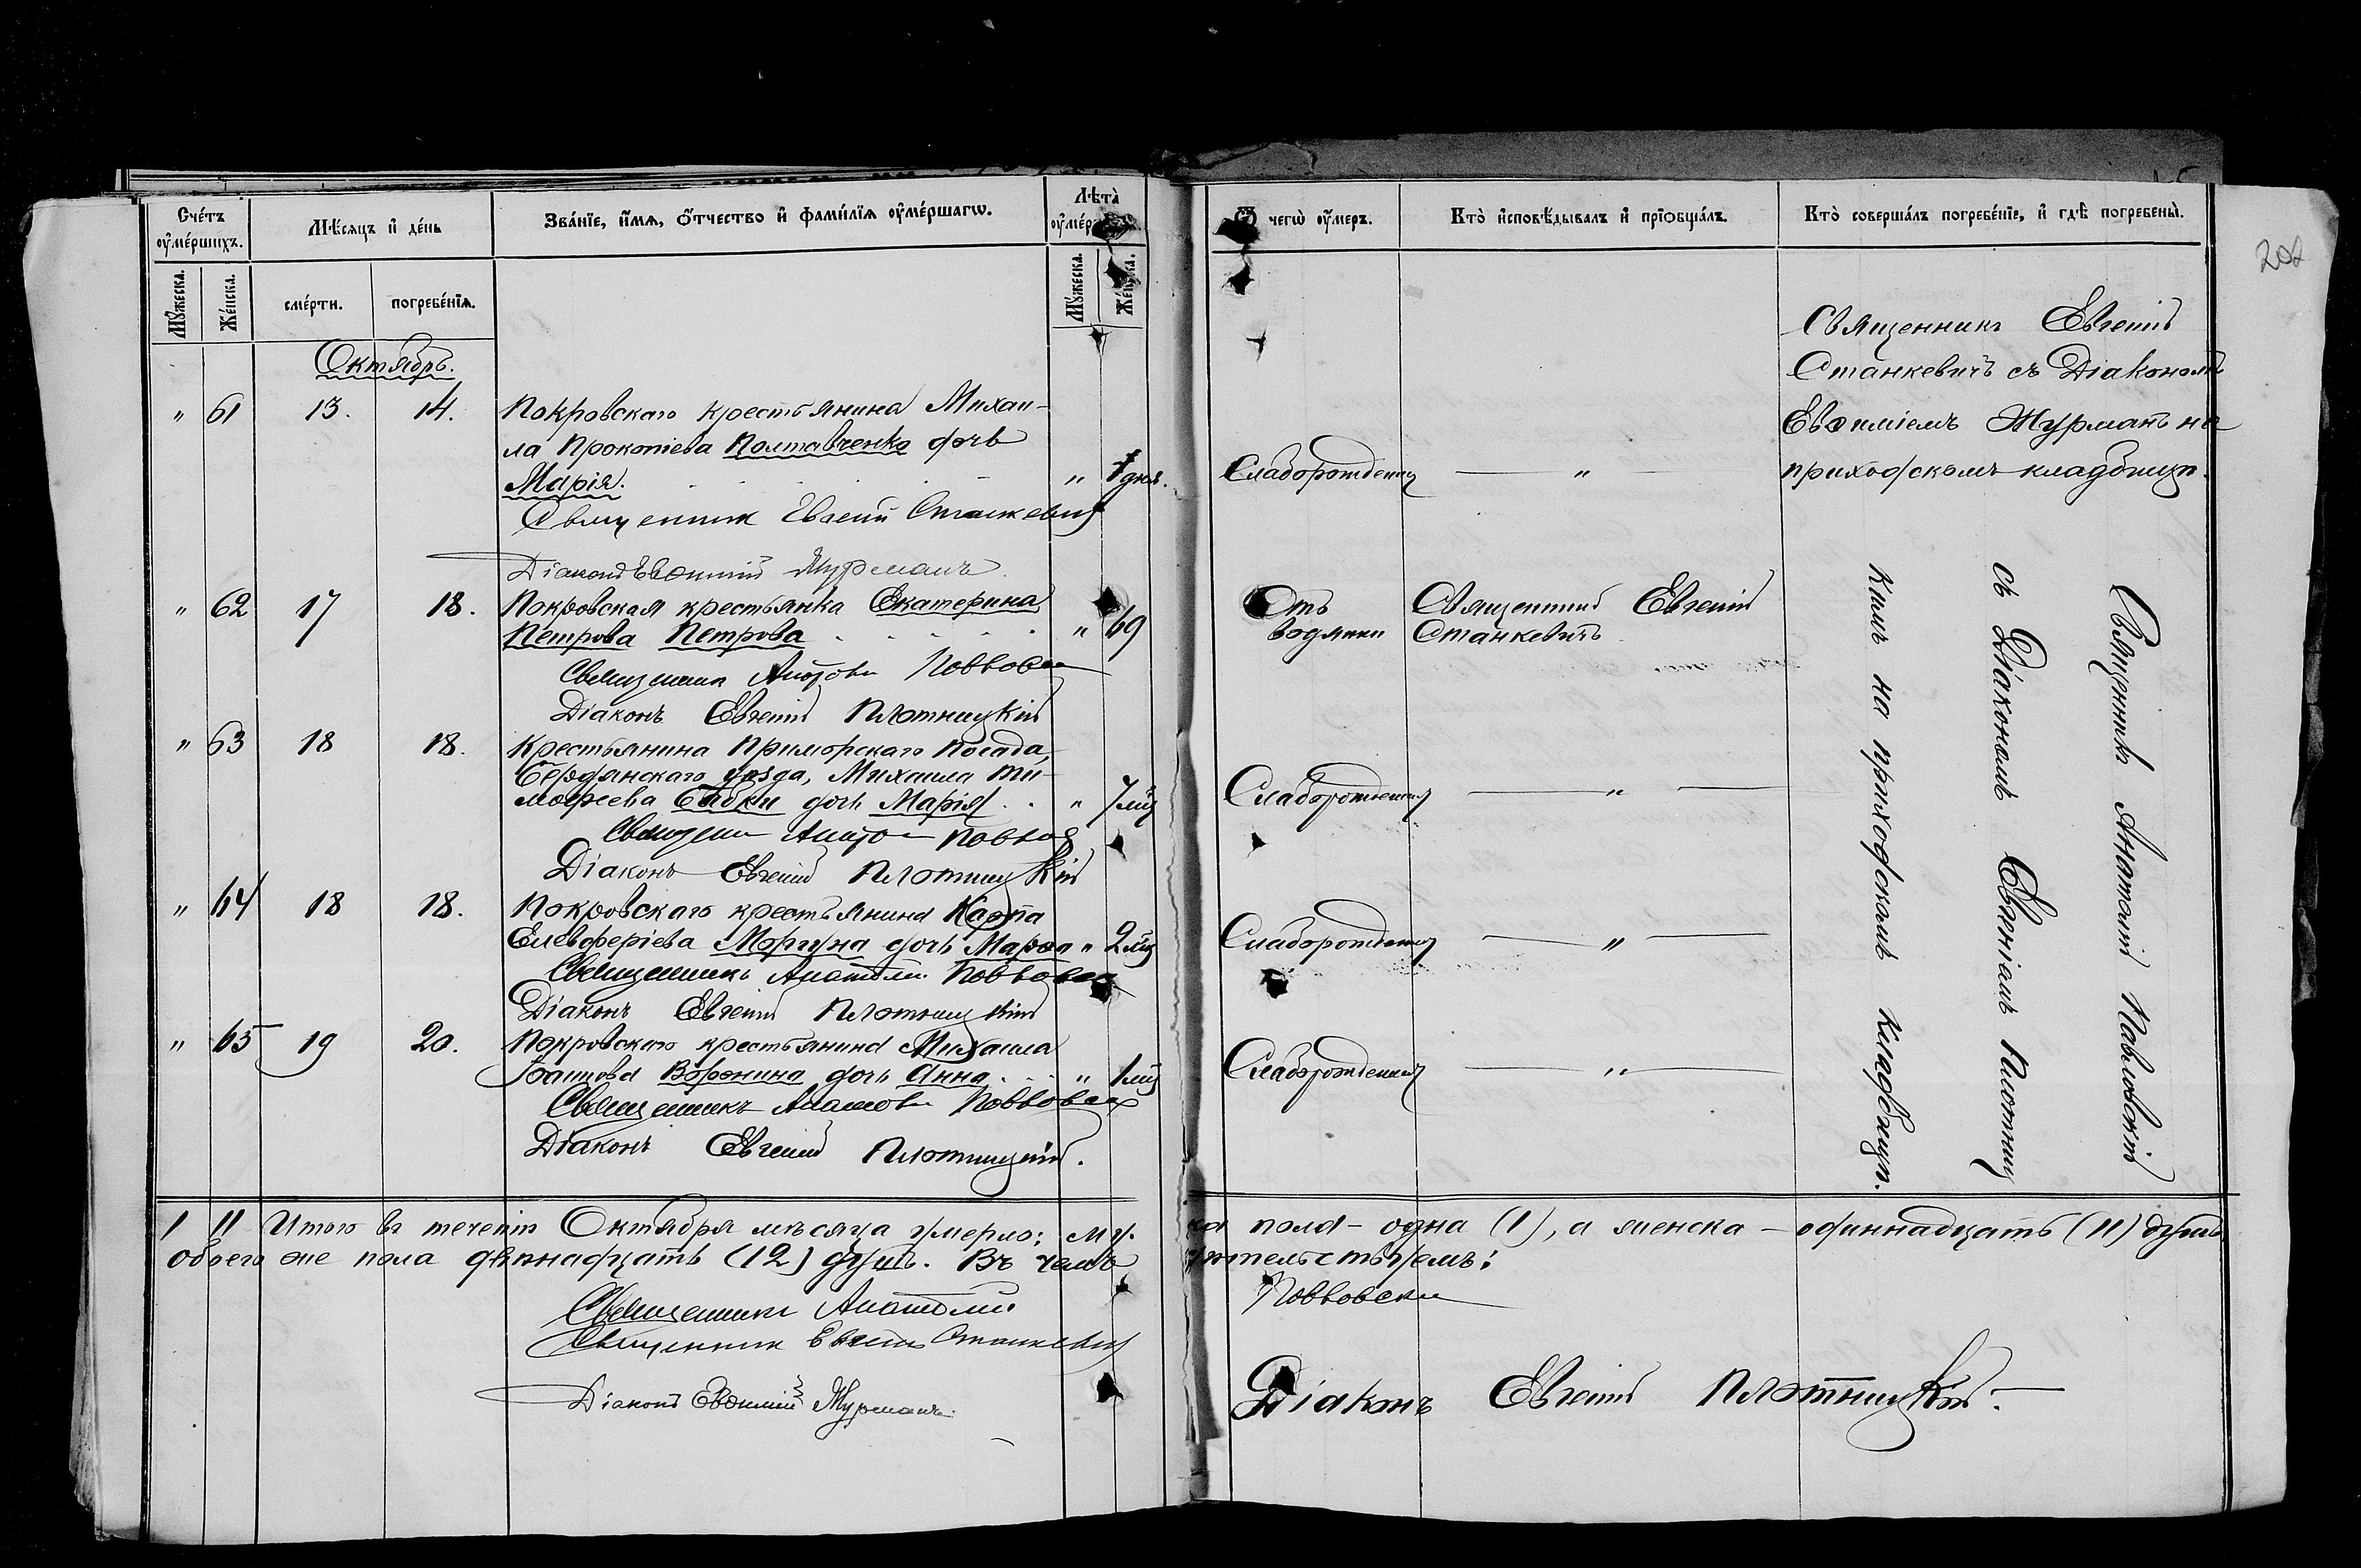 Счетъ оумершихъ.
Мѣсяцъ и день
Званїе, имя, отчество и фамилїя оумершагω.
Лѣта
Мужеска.
Женска.
смерти.
погребенїя.
Мужеска.
чегω оумеръ.
Кто исповѣдывалъ и прїωбщалъ.
Кто совершалъ погребенїе, и гдѣ погребены.
202
Октябрь.
" 61 13. 14. Покровскаго крестьянина Михаи-
ла Прокопіева Полтавченко дочь
Марія. "
Священник Евгеній Станкевич
Діаконъ Евѳимій Мурманъ
Слаборожденія — " —
Священникъ Евгеній
Станкевичъ съ Діакономъ
Евѳиміемъ Мурманъ на
приходскомъ кладбищѣ.
" 62 17 18. Покровская крестьянка Екатерина
Петрова Петрова " 69
Священникъ Павловскій
Діаконъ Евгеній Плотницкій
Отъ водянки
Священникъ Евгеній
Станкевичъ
" 63 18 18. Крестьянина Приморскаго Посада,
Бердянскаго уѣзда, Михаила Ти-
моѳеева Бабки дочь Марія " 7 мц
Священник Павловскій
Діаконъ Евгеній Плотницкій
Слаборожденія — " —
" 64 18 18. Покровскаго крестьянина Карпа
Елевферіева Моргуна дочь Марѳа " 2 мц
Священникъ Анатолій Павловскій
Діаконъ Евгеній Плотницкій
Слаборожденія — " —
" 65 19 20. Покровскаго крестьянина Михаила
Воронина дочь Анна " 1 мц
Священникъ Анатолій Павловскій
Діаконъ Евгеній Плотницкій.
Слаборожденія — " —
Священникъ Анатолій Павловскій
съ Діакономъ Евгеніемъ Плотниц
кимъ на приходскомъ кладбищѣ.
1 11 Итого въ теченіи Октября мѣсяца умерло: му
ка пола — одна (1), а женска — одиннадцать (11) душъ
обоего же пола двѣнадцать (12) душъ. Въ чемъ
тельствуемъ:
Священникъ Анатолій
Павловскій
Священник Евгеній Станкевич
Діаконъ Евѳимій Мурманъ.
Діаконъ Евгеній Плотницкій. —